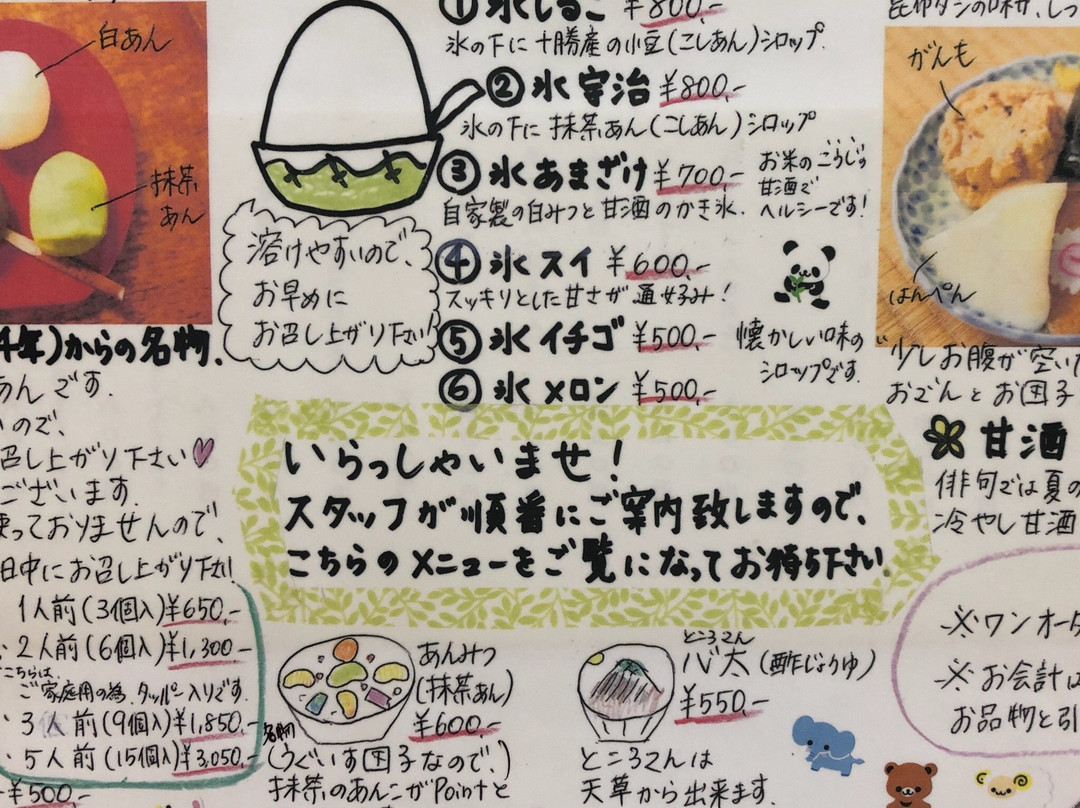 白あん
抹茶
あん
①氷しるこ ¥800,-
氷の下に十勝産の小豆(こしあん)シロップ.
②氷宇治 ¥800,-
氷の下に抹茶あん(こしあん)シロップ
③氷あまざけ ¥700,-
自家製の白みつと甘酒のかき氷.
お米のこうじの
甘酒で
ヘルシーです!
④氷スイ ¥600,-
スッキリとした甘さが通好み!
⑤氷イチゴ ¥500,-
⑥氷メロン ¥500,-
懐かしい味の
シロップです.
溶けやすいので、
お早めに
お召し上がり下さい!
昆布ダシの味付、しっ
がんも
はんぺん
少しお腹が空いた
おでんとお団子
甘酒
俳句では夏の
冷やし甘酒
4年)からの名物.
あんです.
ので、
召し上がり下さい♡
ございます.
使っておりませんので、
日中にお召し上がり下さい!
1人前(3個入)¥650,-
2人前(6個入)¥1,300-
こちらは、
ご家庭用の為、タッパー入りです.
3人前(9個入)¥1,850,-
5人前(15個入)¥3,050,-
¥500,-
いらっしゃいませ!
スタッフが順番にご案内致しますので、
こちらのメニューをご覧になってお待ち下さい.
あんみつ
(抹茶あん)
¥600,-
名物
(うぐいす団子なので、)
抹茶のあんこがPointと
ところてん
心太(酢じょうゆ)
¥550,-
ところてんは
天草から出来ます.
※ワンオーダ
※お会計は
お品物と引